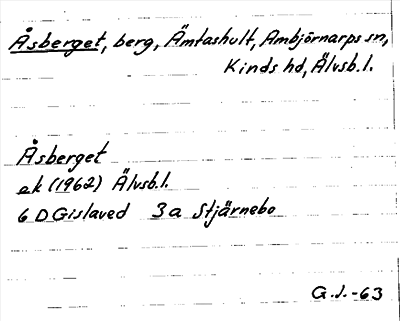 Åsberget, berg, Ämtashult, Ambjörnarps sn,
Kinds hd, Älvsb.l.
Åsberget
ek (1962) Älvsb.l.
6 D Gislaved 3a Stjärnebo
G.J.-63